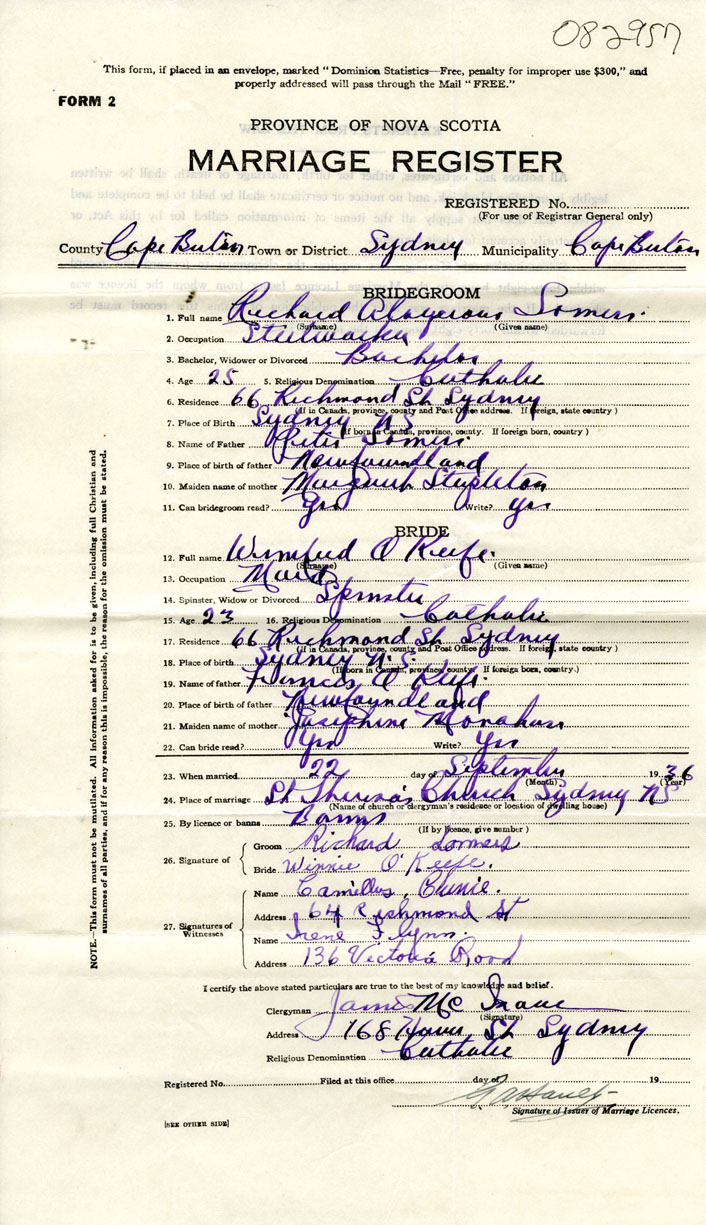 082957
This form, if placed in an envelope, marked "Dominion Statistics—Free, penalty for improper use $300," and
properly addressed will pass through the Mail "FREE."
FORM 2
PROVINCE OF NOVA SCOTIA
MARRIAGE REGISTER
REGISTERED No.
(For use of Registrar General only)
County Cape Breton Town or District Sydney Municipality Cape Breton
BRIDEGROOM
1. Full name Richard Aloyserous Somers.
(Surname) (Given name)
2. Occupation Steelworker
3. Bachelor, Widower or Divorced Bachelor
4. Age 25 5. Religious Denomination Catholic
6. Residence 66 Richmond St Sydney
(If in Canada, province, county and Post Office address. If foreign, state country)
7. Place of Birth Sydney N S
(If born in Canada, province, county. If foreign born, country)
8. Name of Father Peter Somers.
9. Place of birth of father Newfoundland
10. Maiden name of mother Margaret Stapleton
11. Can bridegroom read? Yes Write? yes
BRIDE
12. Full name Winnifred O Keefe.
(Surname) (Given name)
13. Occupation Maid
14. Spinster, Widow or Divorced Spinster
15. Age 23 16. Religious Denomination Catholic
17. Residence 66 Richmond St Sydney
(If in Canada, province, county and Post Office address. If foreign, state country)
18. Place of birth Sydney N. S
(If born in Canada, province, county. If foreign born, country.)
19. Name of father Francis O Keefe.
20. Place of birth of father Newfoundland
21. Maiden name of mother Josephine Monahan
22. Can bride read? Yes Write? Yes
23. When married 22 day of September 1936
(Month) (Year)
24. Place of marriage St Theresa's Church Sydney NS
(Name of church or clergyman's residence or location of dwelling house)
25. By licence or banns Banns
(If by licence, give number)
26. Signature of
Groom Richard Somers
Bride Winnie O'Keefe.
27. Signatures of Witnesses
Name Camillus
Address 64 Richmond St
Name Irene Flynn.
Address 136 Victoria Road
I certify the above stated particulars are true to the best of my knowledge and belief.
Clergyman James Mc Isaac
(Signature)
Address 168 St Sydney
Religious Denomination Catholic
Registered No. Filed at this office day of 19
Signature of Issuer of Marriage Licences.
[SEE OTHER SIDE]
NOTE.—This form must not be mutilated. All information asked for is to be given, including full Christian and
surnames of all parties, and if for any reason this is impossible, the reason for the omission must be stated.